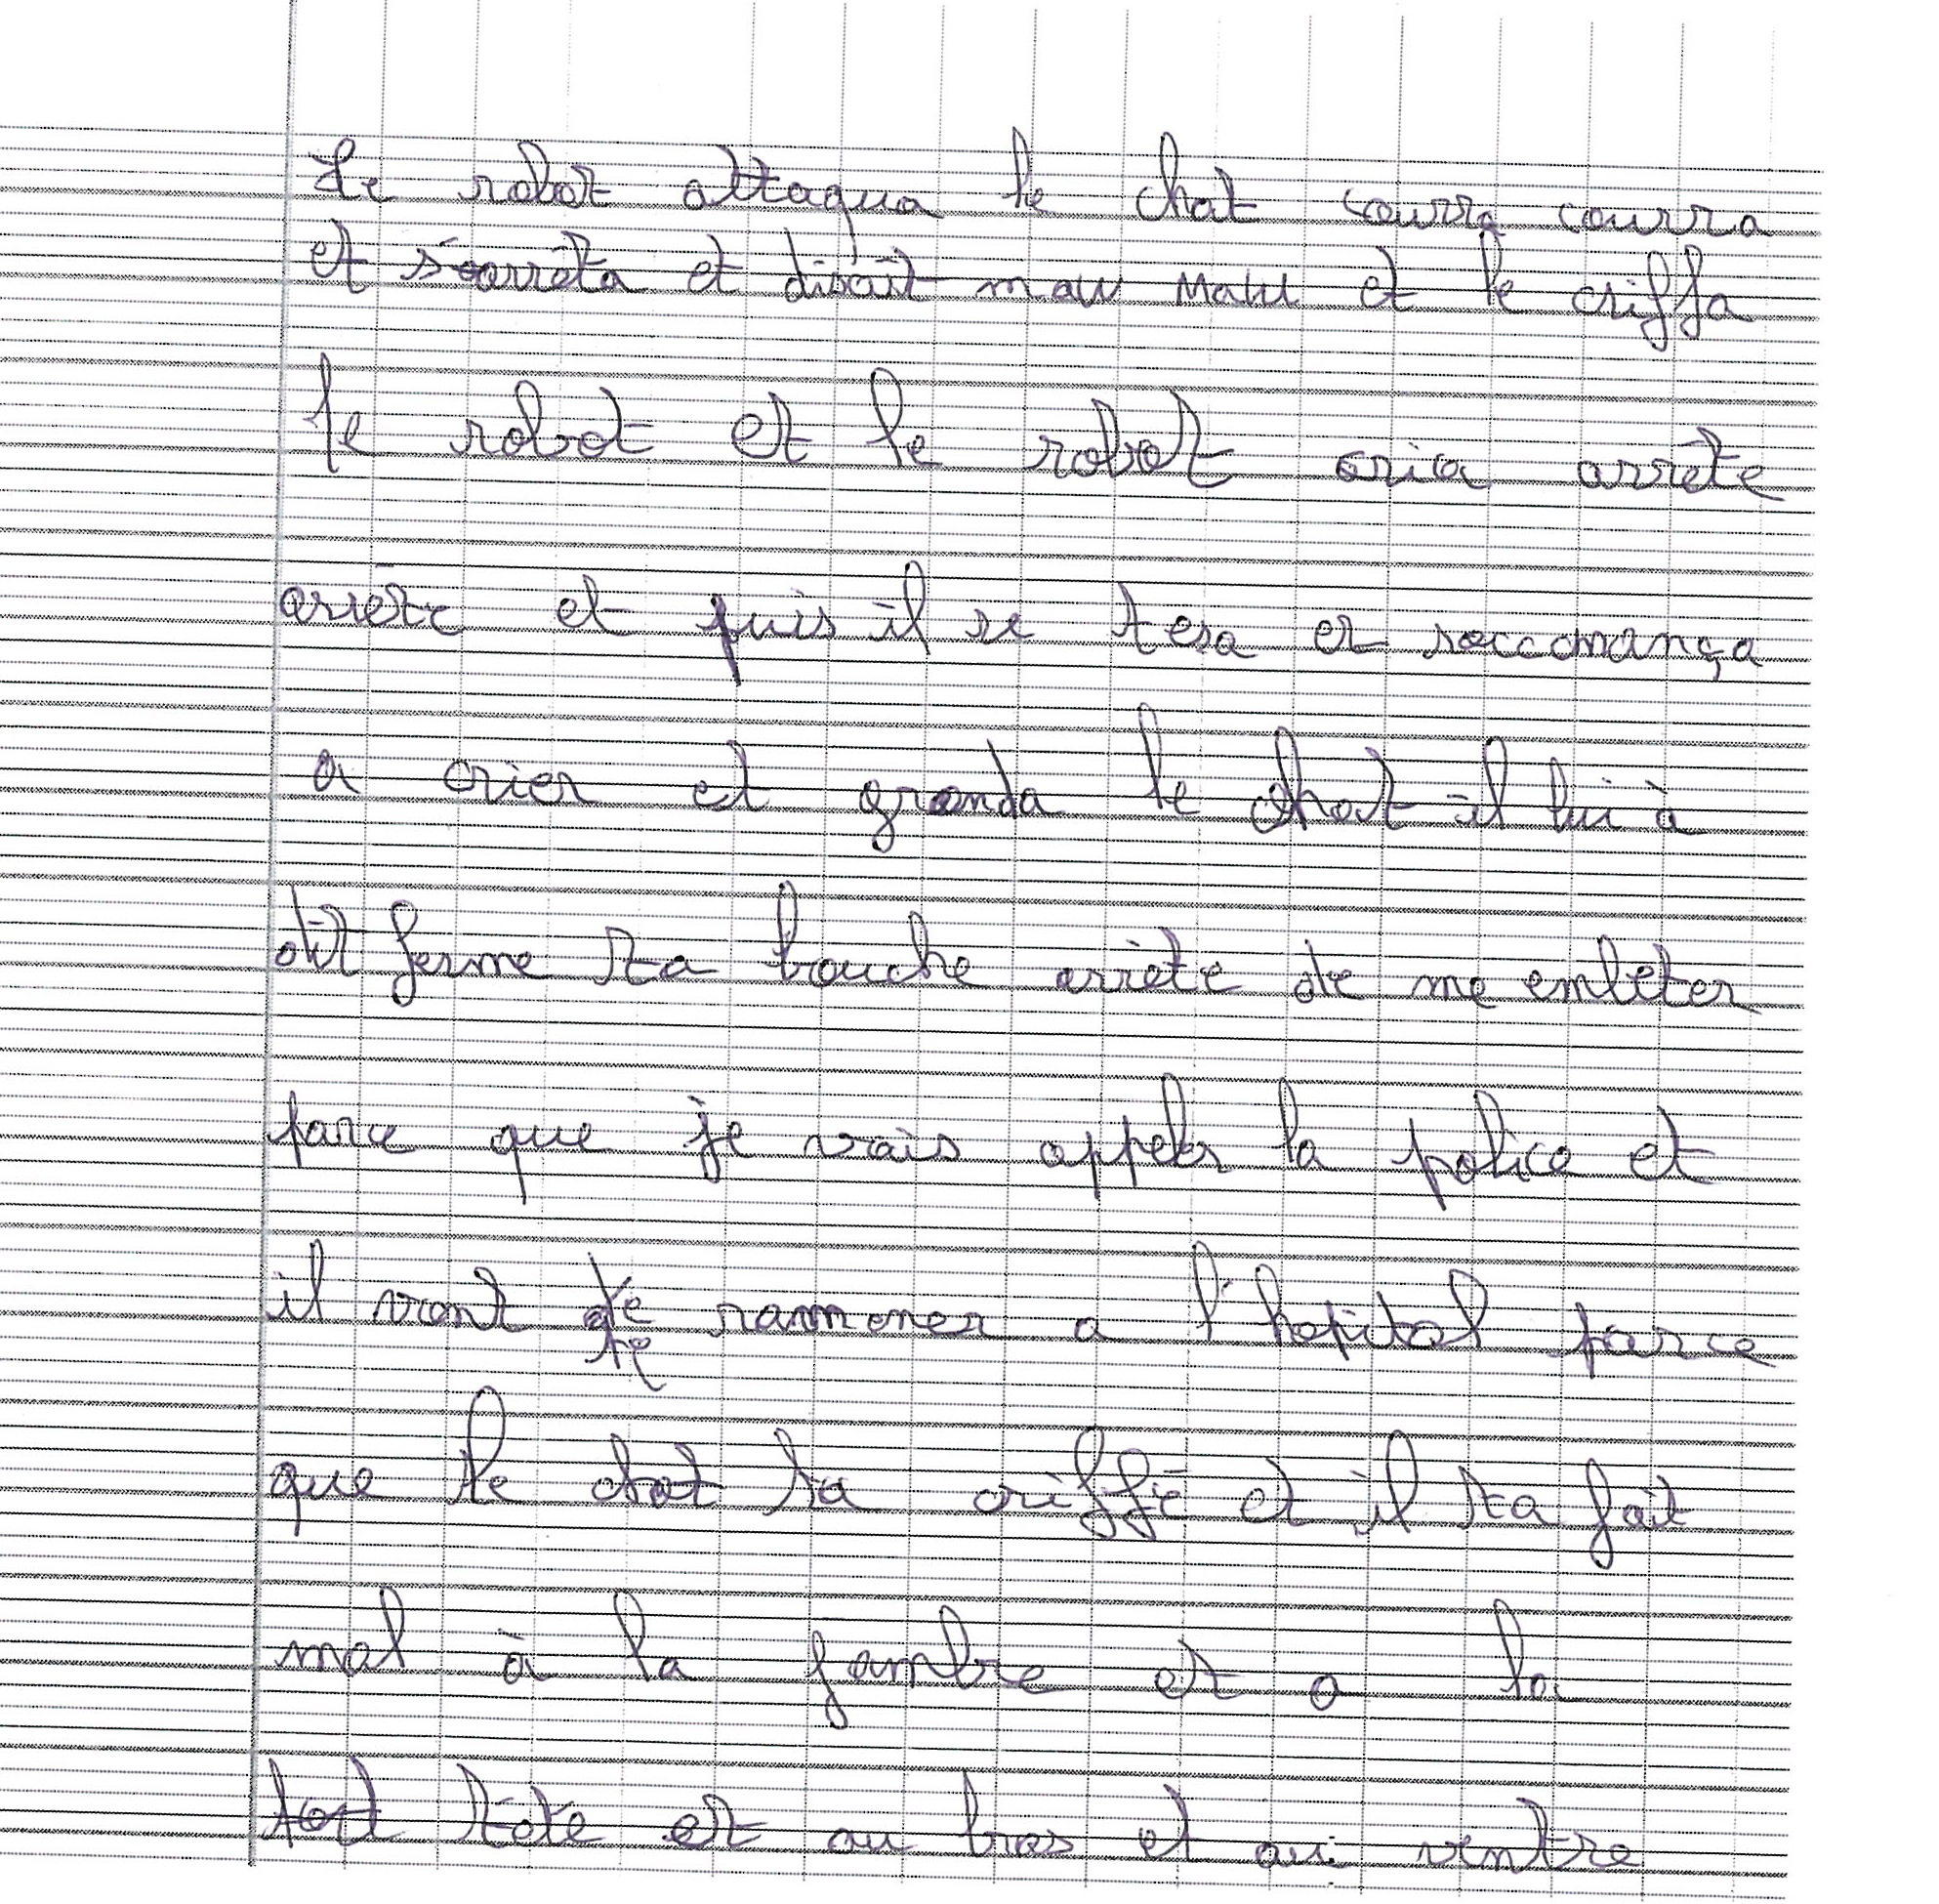 Le robot attaqua le chat courra courra
et s'arrêta et disait maw maw et le criffa
le robot et le robot cria arrête
arrête et puis il se tesa et raccomança
a crier et gronda le chat il lui à
dit ferme ta bouche arrête de me embêter
parce que je vais appeler la police et
il vont te rammener a l'hopital parce
que le chat ta criffé et il ta fait
mal à la jambre et a la
tête et au bras et au ventre